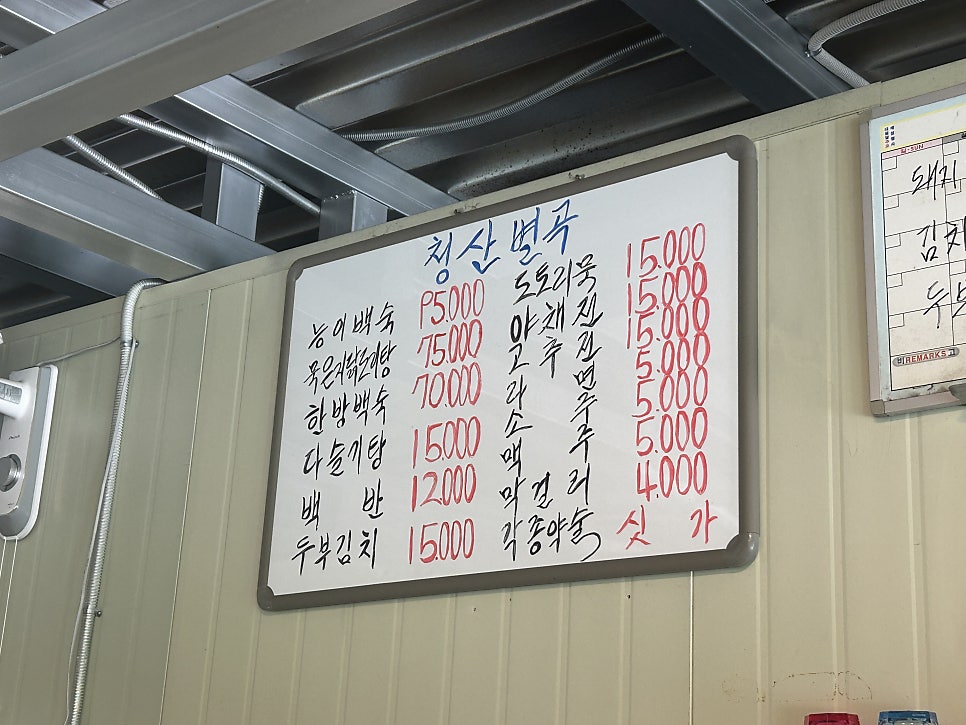 청산별곡
능이백숙
묵은지닭도리탕 75.000
한방백숙 70.000
다슬기탕 15.000
백 반 12.000
두부김치 15.000
도토리묵 15.000
야채전 15.000
고추전 15.000
라 면 5.000
소 주 5.000
맥 주 5.000
막걸리 4.000
각종약술 싯 가
일-SUN
돼지
김치
비 REMARKS 고